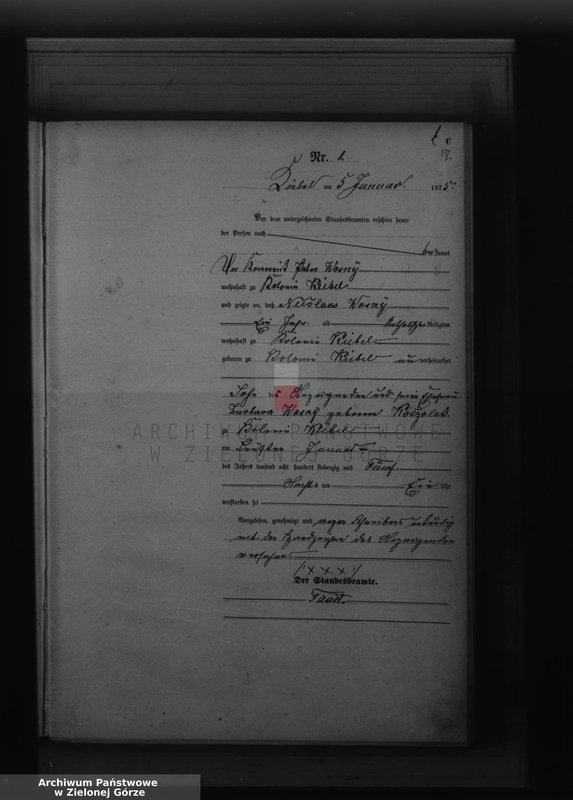 Nr. 1.
Kiebel am 5 Januar. 1875.
Vor dem unterzeichneten Standesbeamten erschien heute
der Person nach
bekannt
Der Peter Wosny
wohnhaft zu Kolonie Kiebel
und zeigte an, daß Nicolaus Wosny
Ein Jahr. alt katholischer Religion
wohnhaft zu Kolonie Kiebel
geboren zu Kolonie Kiebel unverheirathet
Sohn des Anzeigenden und seiner Ehefrau
Barbara Wosny geborene
Kolonie Kiebel
am Januar
des Jahrs tausend acht hundert siebenzig und Fünf.
Nachts um Ein Uhr
verstorben sei
Vorgelesen, genehmigt und wegen Schreibens unkundig
mit den Handzeichen des Anzeigenden
versehen.
/: x x x :/
Der Standesbeamte.
ARCHIWUM PAŃSTWOWE
W ZIELONEJ GÓRZE
Archiwum Państwowe
w Zielonej Górze